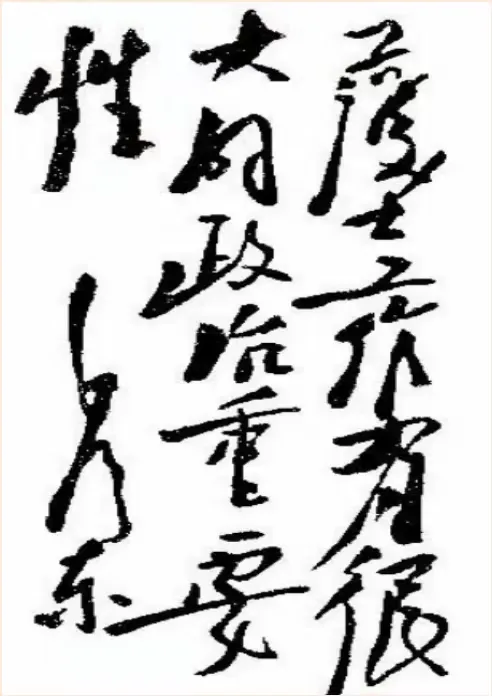 護士工作有很
大的政治重要
性 毛泽东